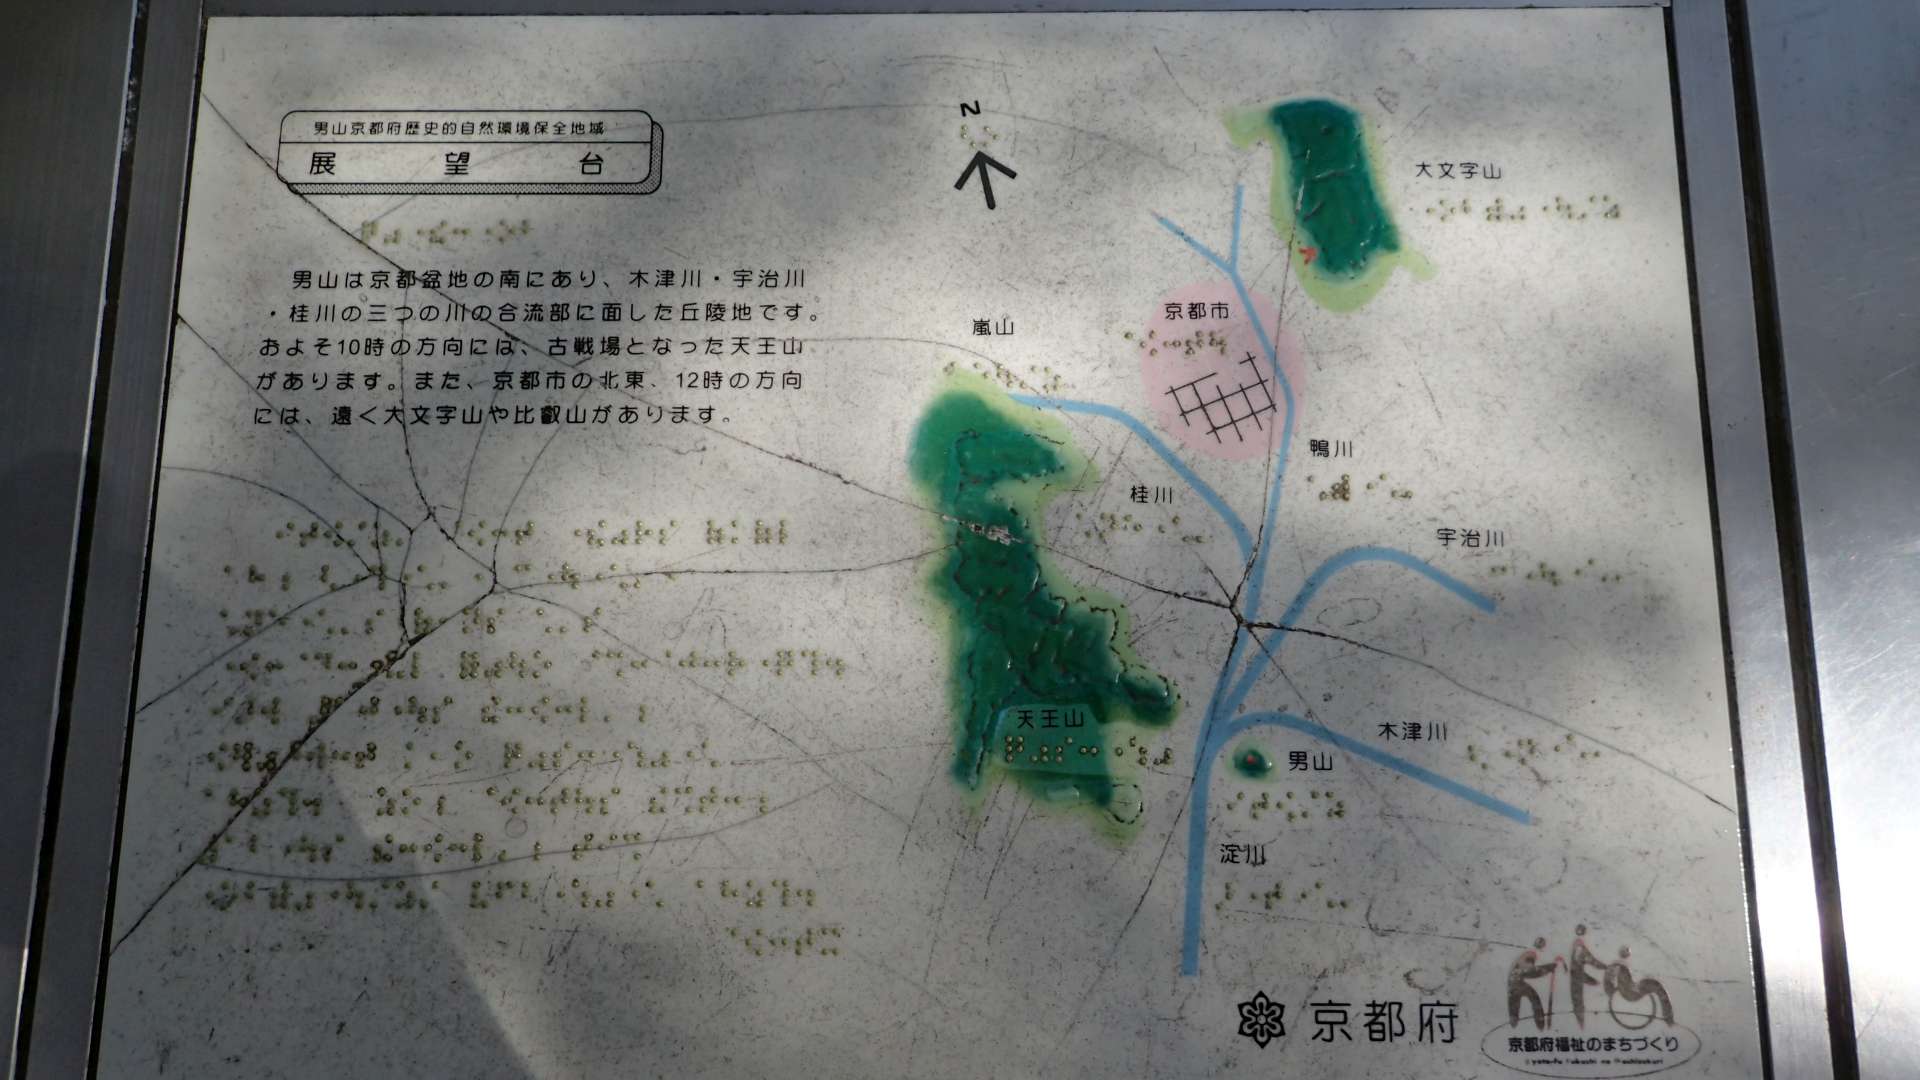 男山京都府歴史的自然環境保全地域
展望台
男山は京都盆地の南にあり、木津川・宇治川
・桂川の三つの川の合流部に面した丘陵地です。
およそ10時の方向には、古戦場となった天王山
があります。また、京都市の北東、12時の方向
には、遠く大文字山や比叡山があります。
N
大文字山
京都市
嵐山
鴨川
桂川
宇治川
天王山
木津川
男山
淀川
京都府
京都府福祉のまちづくり